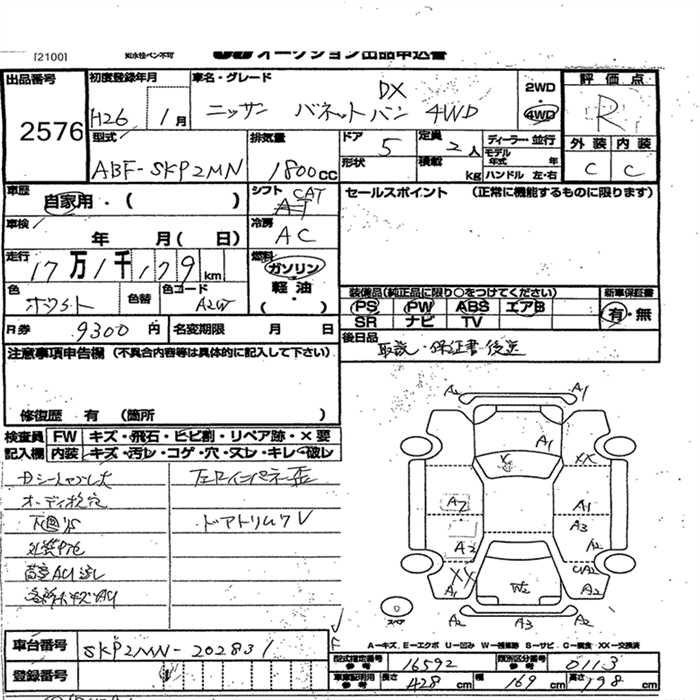 [2100]
オークション出品申込書
出品番号 2576
初度登録年月 H26 1月
車名・グレード DX
ニッサン バネットバン 4WD
2WD
4WD
評価点 R
外装 内装
C C
型式 ABF-SKP2MN
排気量 1800cc
ドア 5
形状
定員 2人
積載 kg
ディーラー・並行
モデル年式 年
ハンドル 左・右
車歴 自家用・( )
シフト CAT AT
車検 年 月( 日)
冷房 AC
走行 17万1千179km
燃料 ガソリン
軽油・
( )
色 ホワイト
色替
色コード A2W
R券 9300円
名変期限 月 日
セールスポイント (正常に機能するものに限ります)
装備品(純正品に限り○をつけてください)
PS PW ABS エアB
SR ナビ TV
新車保証書
有・無
後日品 取説・保証書・後送
注意事項申告欄 (不具合内容等は具体的に記入して下さい)
修復歴 有 (箇所 )
検査員記入欄
FW キズ・飛石・ヒビ割・リペア跡・×要
内装 キズ・汚レ・コゲ・穴・スレ・キレ・破レ
オーディオ欠穴
ドアトリムクV
A1
A1
A1
XX
A2
A1
A3
A2
A2
XX
UA2
A1
W2
A2
A2
A3
A2
スペア
A-キズ E-エクボ U-凹み W-補修跡 S-サビ C-腐食 XX-交換済
車台番号 SKP2MN-202831
登録番号
型式指定番号 参考 16592
類別区分番号 参考 0113
車庫証明用 参考 長さ 428cm 幅 169cm 高さ 198cm